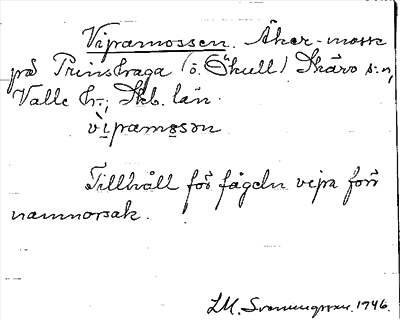 Vipamossen. Åker-mosse
på Prinshaga (ö. Skull) Skärv s:n,
Valle hd; Skb. län.
vìpamɷsɷn
Tillhåll för fågeln vipa förr
namnorsak.
LM. Svenungsson. 1946.